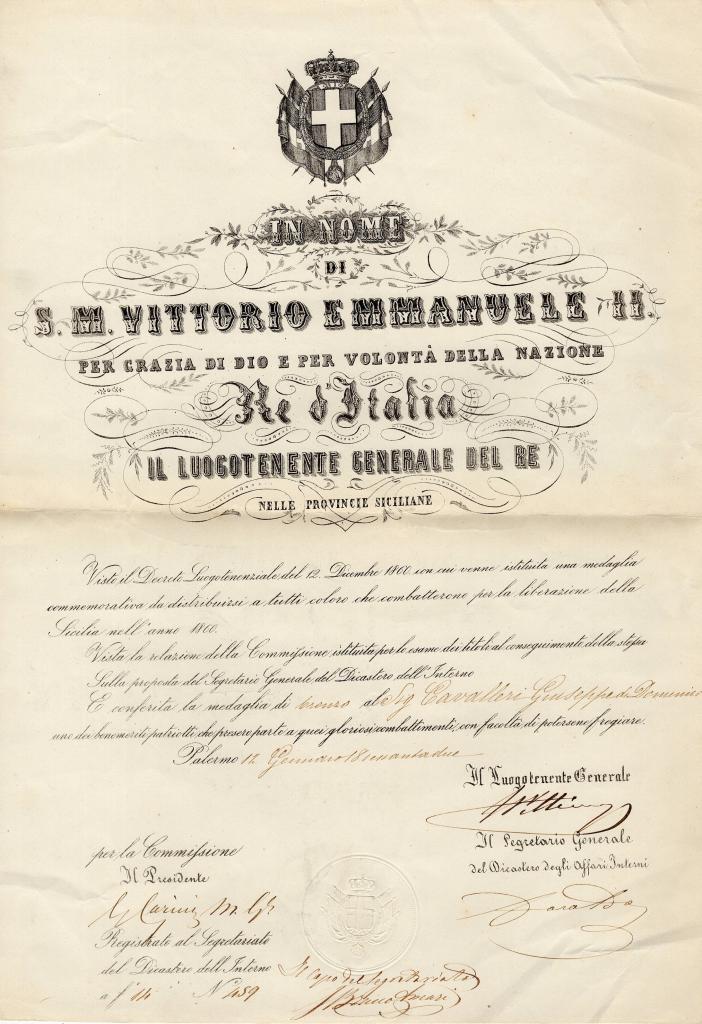 IN NOME
DI
S. M. VITTORIO EMMANUELE II.
PER GRAZIA DI DIO E PER VOLONTÀ DELLA NAZIONE
Re d'Italia
IL LUOGOTENENTE GENERALE DEL RE
NELLE PROVINCIE SICILIANE
Visto il Decreto Luogotenenziale del 12. Dicembre 1860. con cui venne istituita una medaglia
commemorativa da distribuirsi a tutti coloro che combatterono per la liberazione della
Sicilia nell'anno 1860.
Vista la relazione della Commissione istituita per lo esame dei titoli al conseguimento della stessa
Sulla proposta del Segretario Generale del Dicastero dell'Interno
È conferita la medaglia di bronzo al Sig Cavalleri Giuseppe di Domenico
uno dei benemeriti patriotti, che presero parte a quei gloriosi combattimenti, con facoltà di potersene fregiare.
Palermo 12 Gennaro 18sessantadue
Il Luogotenente Generale
Il Segretario Generale
del Dicastero degli Affari Interni
per la Commissione
Il Presidente
G Carini M. Gle
Registrato al Segretariato
del Dicastero dell'Interno
a fo 114 No 459
Il Capo del Segretariato